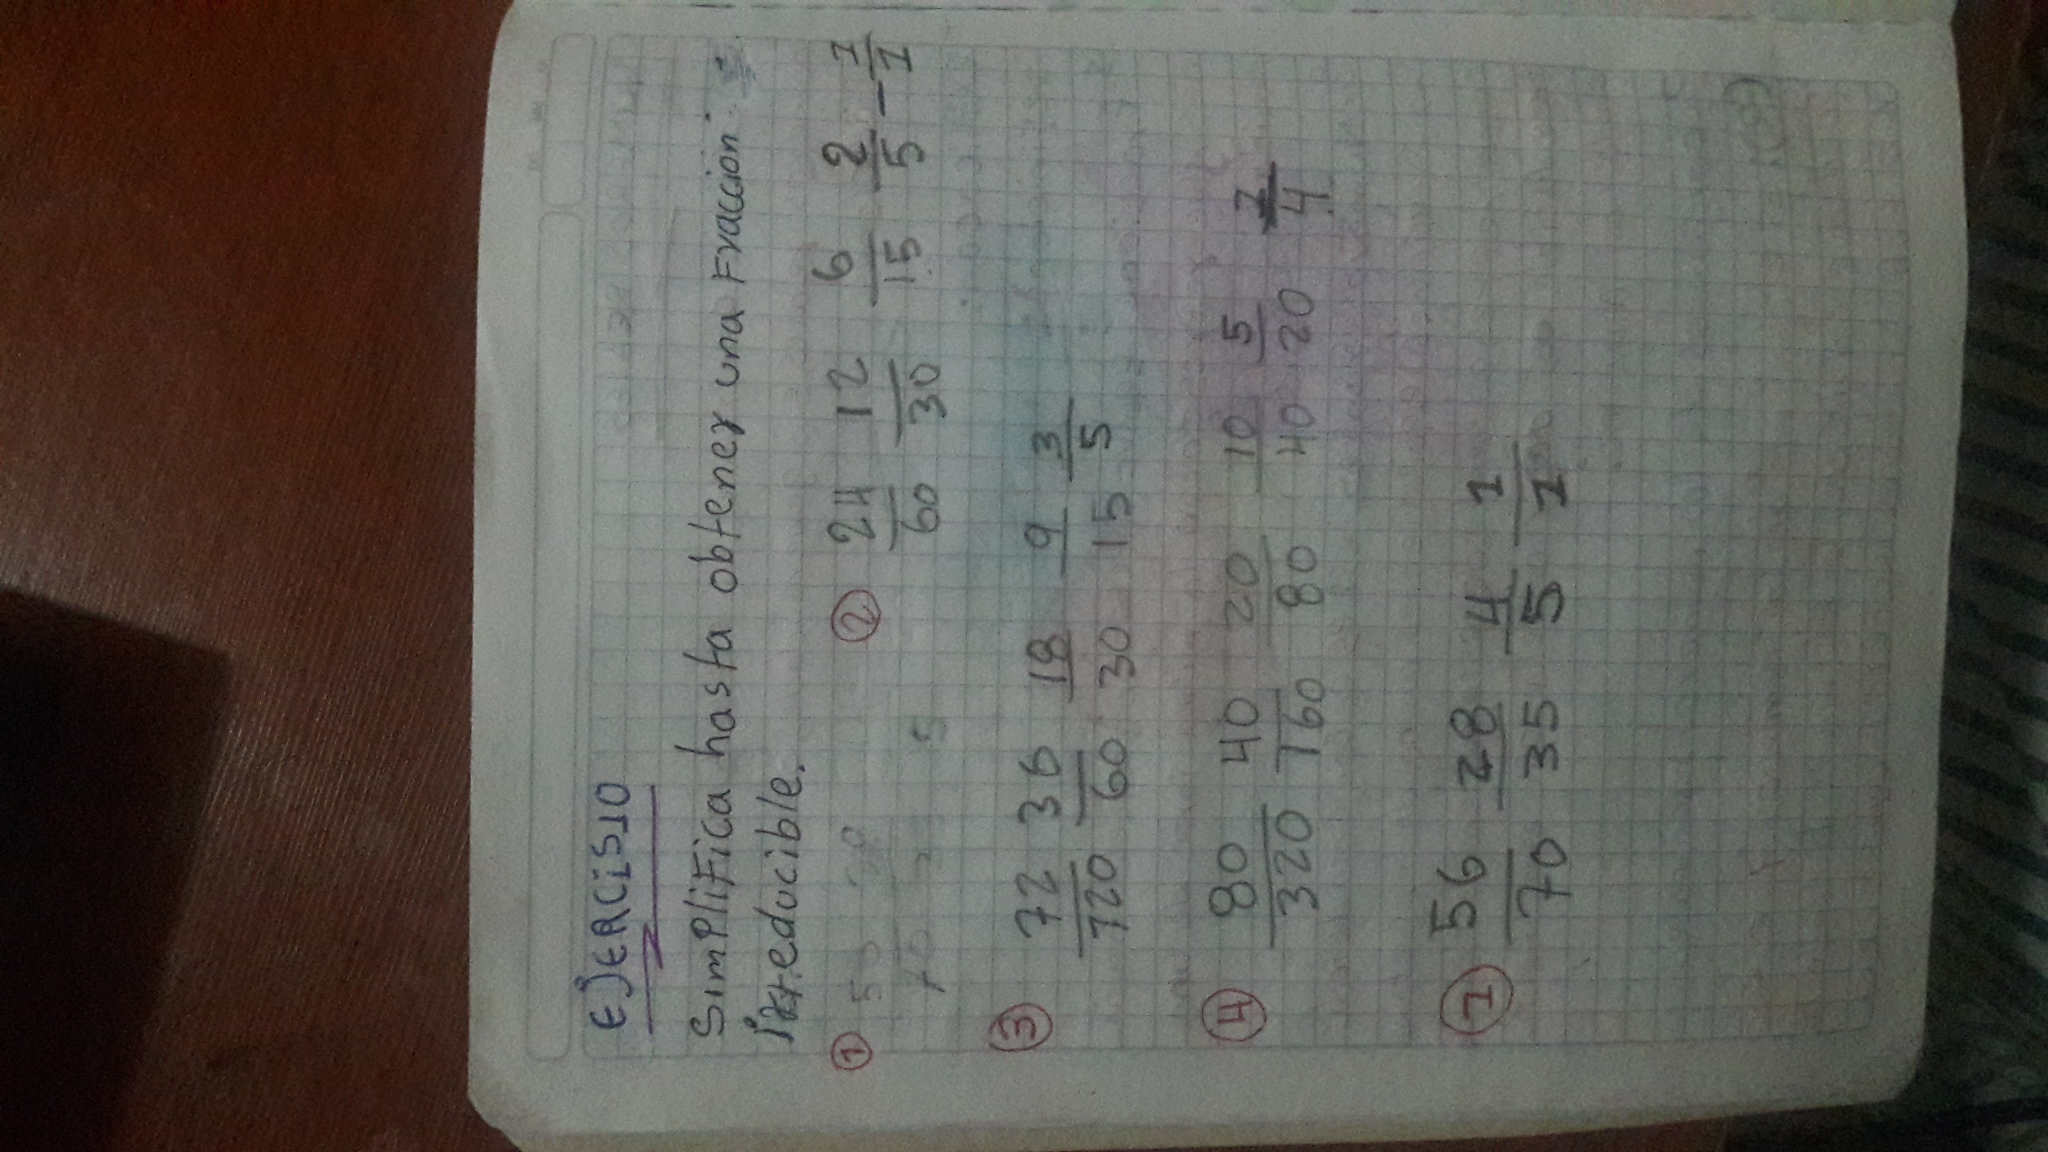 EJERCISIO
SimPliFica hasta obtener una Fracción
irreducible.
① ② 24/60 12/30 6/15 2/5 - 1/1
③ 72/120 36/60 18/30 9/15 3/5
④ 80/320 40/160 20/80 10/40 5/20 1/4
① 56/70 28/35 4/5 1/1